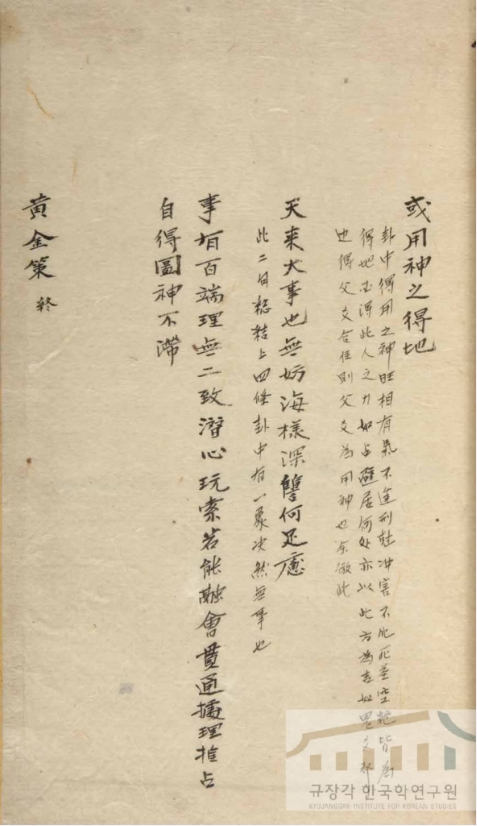 或用神之得地
卦中得用之神旺相有氣不逢刑尅冲害不化死墓空絶皆為
得地必得此人之力如占避居何处亦以此方為吉如
也得父爻合住則父爻為用神也余倣此
天來大事也無妨海樣深讐何足慮
此二句総結上四條卦中有一象決然無事也
事有百端理無二致潛心玩索若能融會貫通據理推占
自得圓神不滯
黃金策 終
규장각 한국학연구원
KYUJANGGAK INSTITUTE FOR KOREAN STUDIES